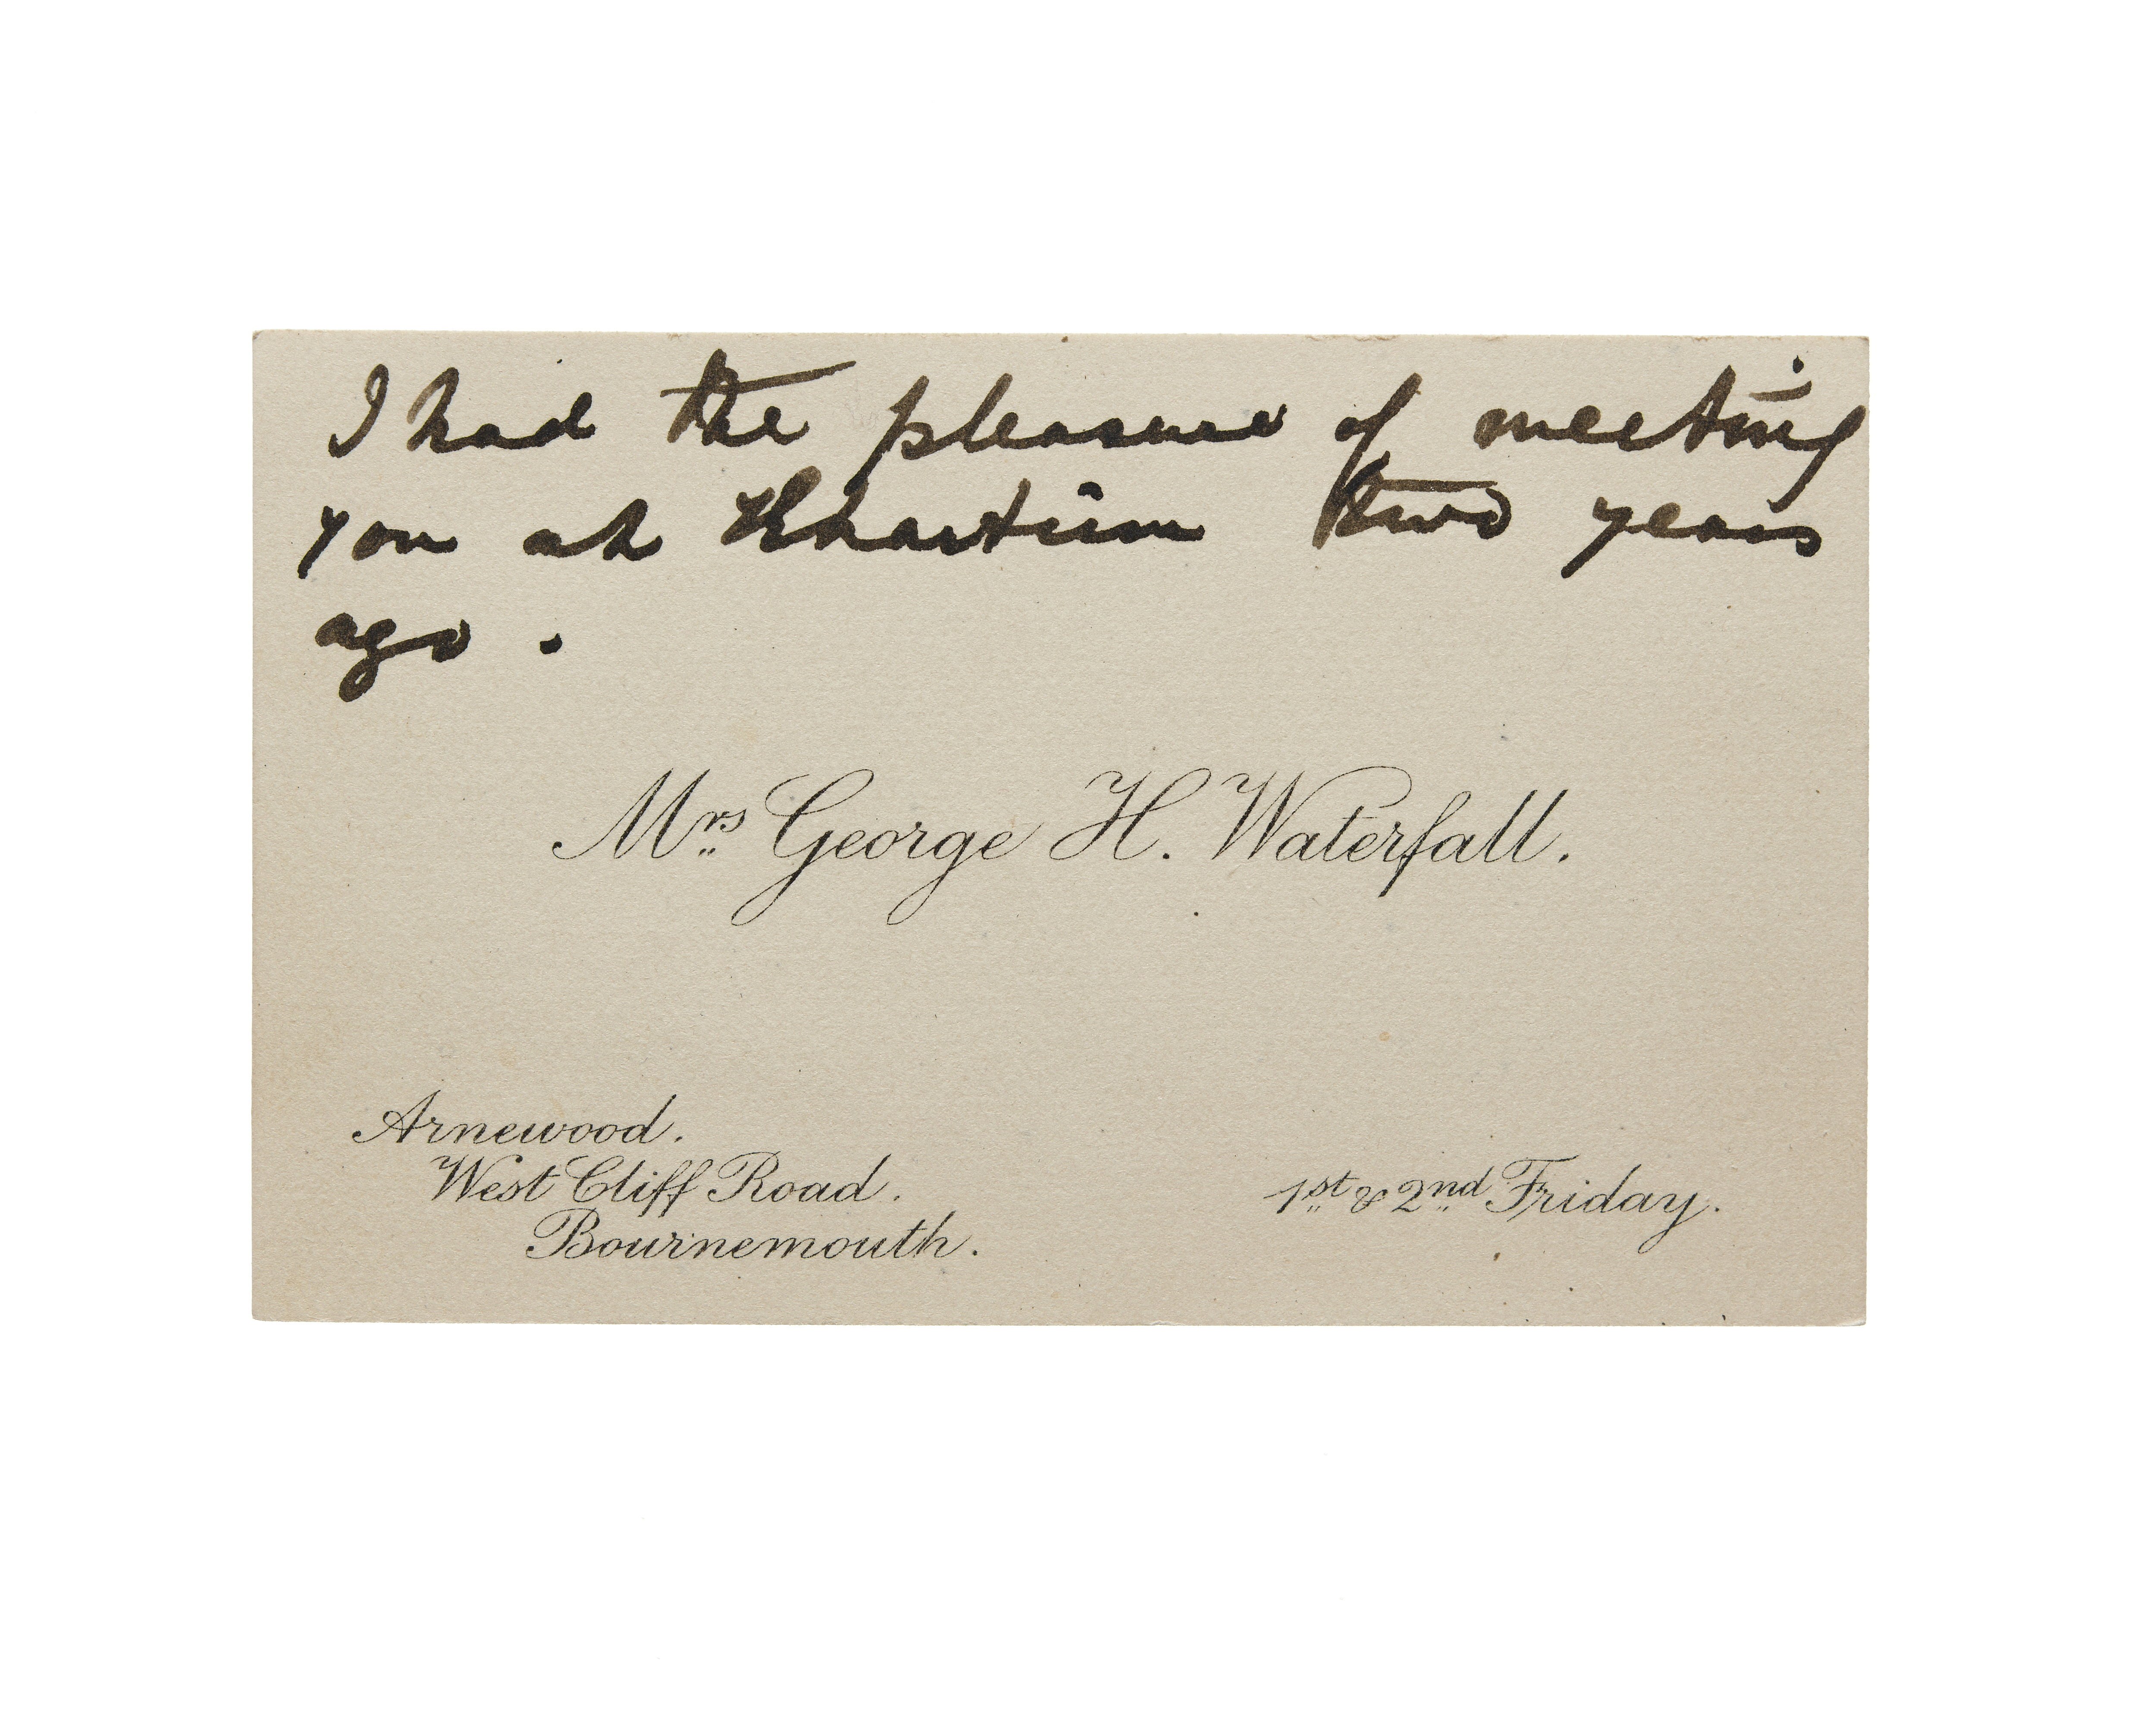 I had the pleasure of meeting
you at Khartum two years
ago .
Mrs George H. Waterfall.
Arnewood.
West Cliff Road.
Bournemouth.
1st & 2nd Friday.